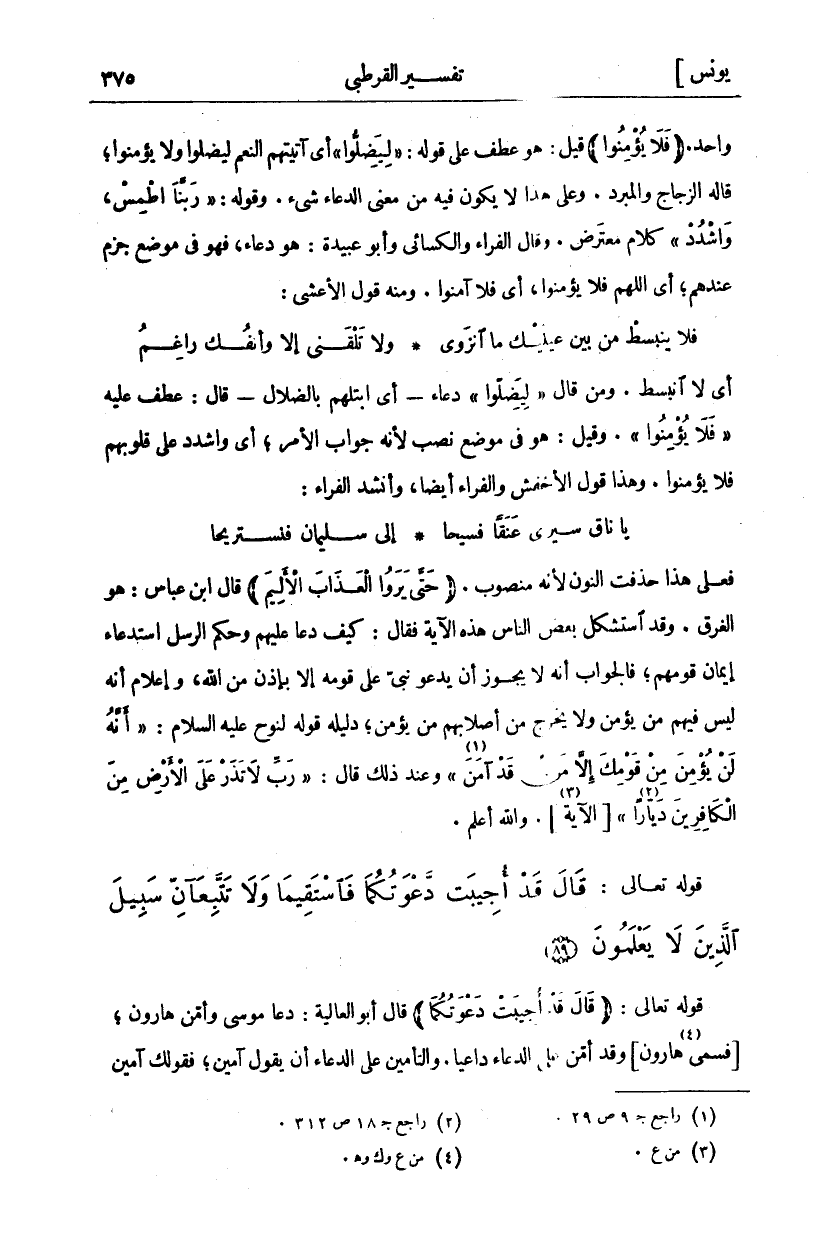 يونس ] تفسير القرطبى ٣٧٥
واحد. ﴿ فَلَا يُؤْمِنُوا ﴾ قيل : هو عطف على قوله : « لِيَضِلُّوا » أى آتيتهم النعم ليضلوا ولا يؤمنوا؛
قاله الزجاج والمبرد . وعلى هذا لا يكون فيه من معنى الدعاء شىء . وقوله : « رَبَّنَا اطْمِسْ،
وَاشْدُدْ » كلام معترَض . وقال الفراء والكسائى وأبو عبيدة : هو دعاء، فهو فى موضع جزم
عندهم؛ أى اللهم فلا يؤمنوا، أى فلا آمنوا . ومنه قول الأعشى :
فلا ينبسطْ من بين عينيك ما ٱنزوى * ولا تَلْقَنى إلا وأنفُك راغمُ
أى لا ٱنبسط . ومن قال « لِيَضِلّوا » دعاء — أى ابتلهم بالضلال — قال : عطف عليه
« فَلَا يُؤْمِنُوا » . وقيل : هو فى موضع نصب لأنه جواب الأمر؛ أى واشدد على قلوبهم
فلا يؤمنوا . وهذا قول الأخفش والفراء أيضا، وأنشد الفراء :
يا ناق سيرى عَنَقًا فسيحا * إلى سليمان فنستريحا
فعلى هذا حذفت النون لأنه منصوب . ﴿ حَتَّى يَرَوُا الْعَذَابَ الْأَلِيمَ ﴾ قال ابن عباس : هو
الغرق . وقد ٱستشكل بعض الناس هذه الآية فقال : كيف دعا عليهم وحكم الرسل استدعاء
إيمان قومهم؛ فالجواب أنه لا يجوز أن يدعو نبىّ على قومه إلا بإذن من الله، وإعلام أنه
ليس فيهم من يؤمن ولا يخرج من أصلابهم من يؤمن؛ دليله قوله لنوح عليه السلام : « أَنَّهُ
لَنْ يُؤْمِنَ مِنْ قَوْمِكَ إِلَّا مَنْ قَدْ آمَنَ (١) » وعند ذلك قال : « رَبِّ لَا تَذَرْ عَلَى الْأَرْضِ مِنَ
الْكَافِرِينَ دَيَّارًا (٢) » [ الآية (٣) ] . والله أعلم .
قوله تعالى : قَالَ قَدْ أُجِيبَت دَّعْوَتُكُمَا فَٱسْتَقِيمَا وَلَا تَتَّبِعَآنِّ سَبِيلَ
ٱلَّذِينَ لَا يَعْلَمُونَ ﴿٨٩﴾
قوله تعالى : ﴿ قَالَ قَدْ أُجِيبَتْ دَعْوَتُكُمَا ﴾ قال أبو العالية : دعا موسى وأمّن هارون؛
[فسمى هارون (٤)] وقد أمّن على الدعاء داعيا. والتأمين على الدعاء أن يقول آمين؛ فقولك آمين
(١) راجع جـ ٩ ص ٢٩ . (٢) راجع جـ ١٨ ص ٣١٢ .
(٣) من ع . (٤) من ع وك وهـ .